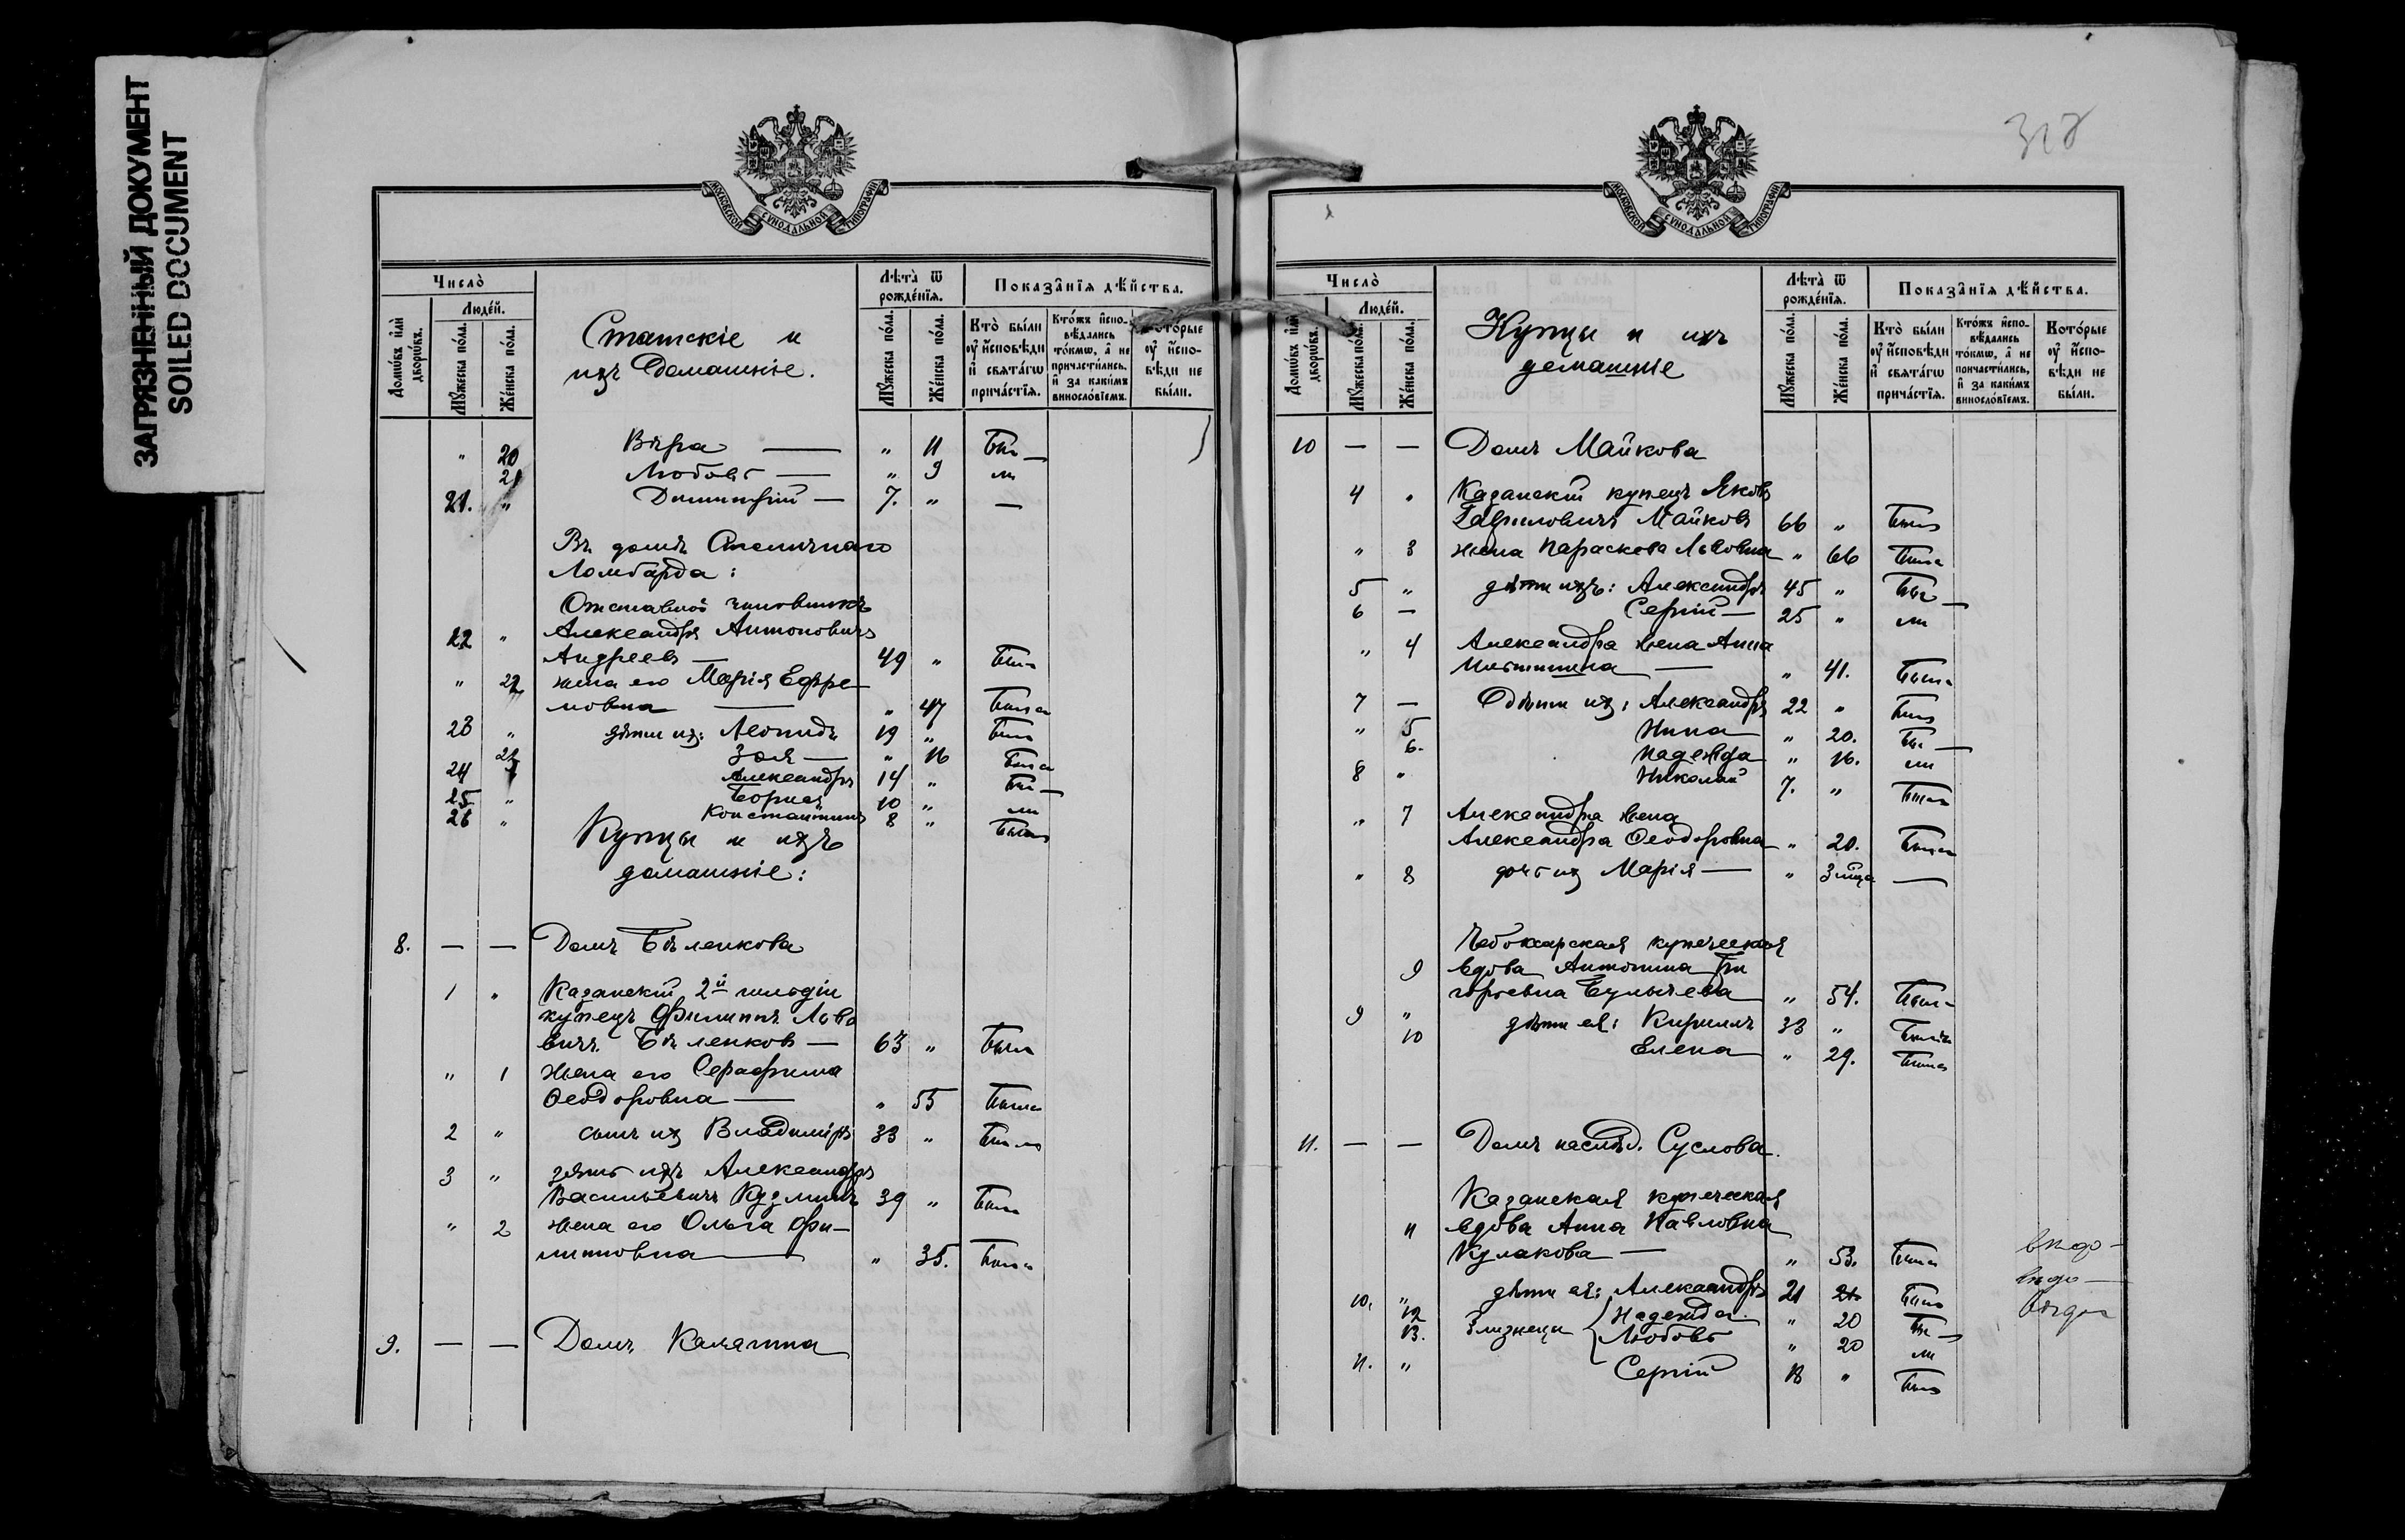 ЗАГРЯЗНЕННЫЙ ДОКУМЕНТ
SOILED DOCUMENT
МОСКОВСКОЙ СѴНОДАЛЬНОЙ ТИПОГРАФІИ
Число̀
Людей.
Домѡвъ и҆лѝ дворѡвъ.
Мꙋжеска по́ла.
Же́нска по́ла.
Статскіе и
ихъ Домашніе.
Лѣта̀ ѿ рожде́нїѧ.
Мꙋжеска по́ла.
Же́нска по́ла.
Показа̑нїѧ дѣ́йства.
Кто̀ бы́ли оу҆ и҆сповѣди и҆ свѧта́гѡ прича́стїѧ.
Кто́жъ и҆спо-вѣдались то́кмѡ, а҆ не причасти́лись, и҆ за каки́мъ винослові́емъ.
Кото́рые оу҆ и҆спо-вѣди не бы́ли.
" 20 Вѣра — " 11 Бы—
21 Любовь — " 9 ли
21. " Димитрій — 7. " —
Въ домѣ Столичнаго
Ломбарда:
Отставной чиновникъ
22 " Александръ Антоновичъ
Андреевъ — 49 " Былъ
" 22 жена его Марія Ефре-
мовна — " 47 Была
23 " дѣти их: Леонидъ 19 " Былъ
Зоя — " 16 Была
24 Александръ 14 " Бы—
25 " Борисъ 10 " ли
26 " Константинъ 8 " Былъ
Купцы и ихъ
домашніе:
8. — — Домъ Бѣленкова
1 " Казанскій 2й гильдіи
купецъ Филиппъ Льво
вичъ Бѣленковъ — 63 " Былъ
" 1 Жена его Серафима
Ѳеодоровна — " 55 Была
2 " сынъ их Владиміръ 33 " Былъ
3 " зять ихъ Александръ
Васильевичъ Кузминъ 39 " Былъ
" 2 Жена его Ольга Фи-
липповна — " 35. Была
9. — — Домъ Калягина
МОСКОВСКОЙ СѴНОДАЛЬНОЙ ТИПОГРАФІИ
Число̀
Людей.
Домѡвъ и҆лѝ дворѡвъ.
Мꙋжеска по́ла.
Же́нска по́ла.
Купцы и ихъ
домашніе
Лѣта̀ ѿ рожде́нїѧ.
Мꙋжеска по́ла.
Же́нска по́ла.
Показа̑нїѧ дѣ́йства.
Кто̀ бы́ли оу҆ и҆сповѣди и҆ свѧта́гѡ прича́стїѧ.
Кто́жъ и҆спо-вѣдались то́кмѡ, а҆ не причасти́лись, и҆ за каки́мъ винослові́емъ.
Кото́рые оу҆ и҆спо-вѣди не бы́ли.
10 — — Домъ Майкова
4 " Казанскій купецъ Яковъ
Гавриловичъ Майковъ 66 " Былъ
" 3 жена Параскева Львовна " 66 Была
5 " дѣти ихъ: Александръ 45 " Бы—
6 — Сергій — 25 " ли
" 4 Александра жена Анна
— " 41. Была
7 — Дѣти их: Александръ 22 " Былъ
" 5 Нина " 20. Бы—
6. Надежда " 16. ли
8 " Николай 7. " Былъ
" 7 Александра жена
Александра Ѳеодоровна " 20. Была
" 8 дочь их Марія — " 3 мца —
Чебоксарская купеческая
9 вдова Антонина Гри
горьевна Булычева " 54. Была
9 " дѣти ея: Кириллъ 33 " Былъ
10 Елена " 29. Была
11. — — Домъ наслѣд. Суслова.
Казанская купеческая
11 вдова Анна Павловна
Кулакова — " 53. Была
10. " дѣти ея: Александръ 21 21 Былъ
12 Близнецы Надежда " 20 Бы—
13. Любовь " 20 ли
11. " Сергій 18 " Былъ